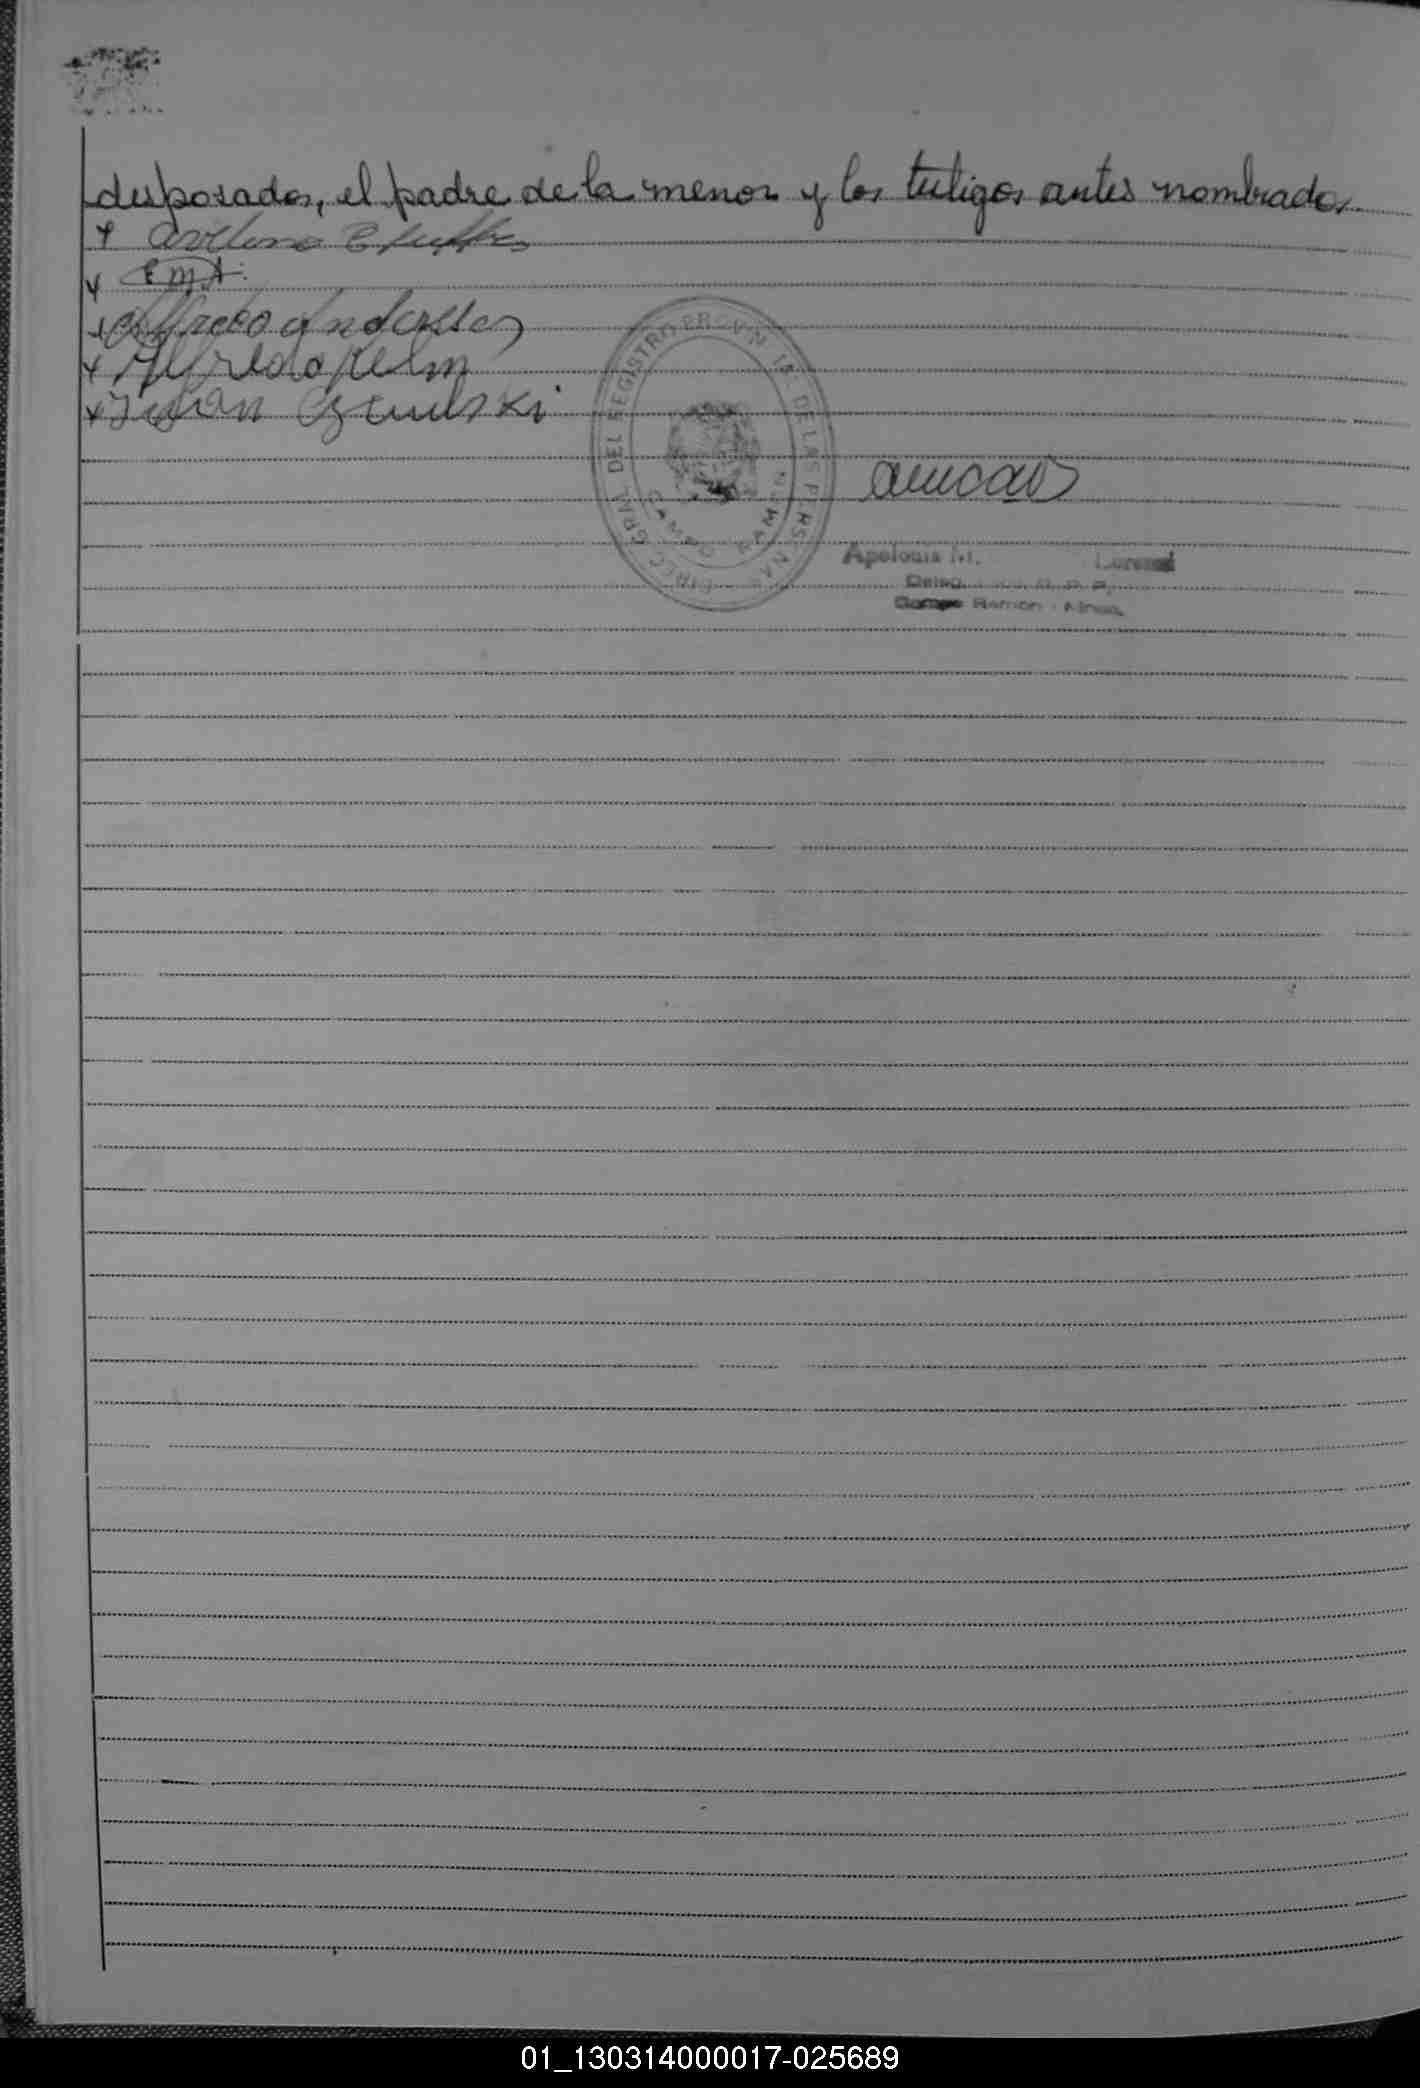 desposados, el padre de la menor y los testigos antes nombrados.
x Avelino
x E.M.A.
x Alfredo Andersen
x Alfredo Kelm
x Juan
DIREC. GRAL. DEL REGISTRO PROVINCIA DE LAS PERSONAS
CAMPO RAMON
Apolonia M. Lorenzi
Campo Ramon - Mnes.
01_130314000017-025689